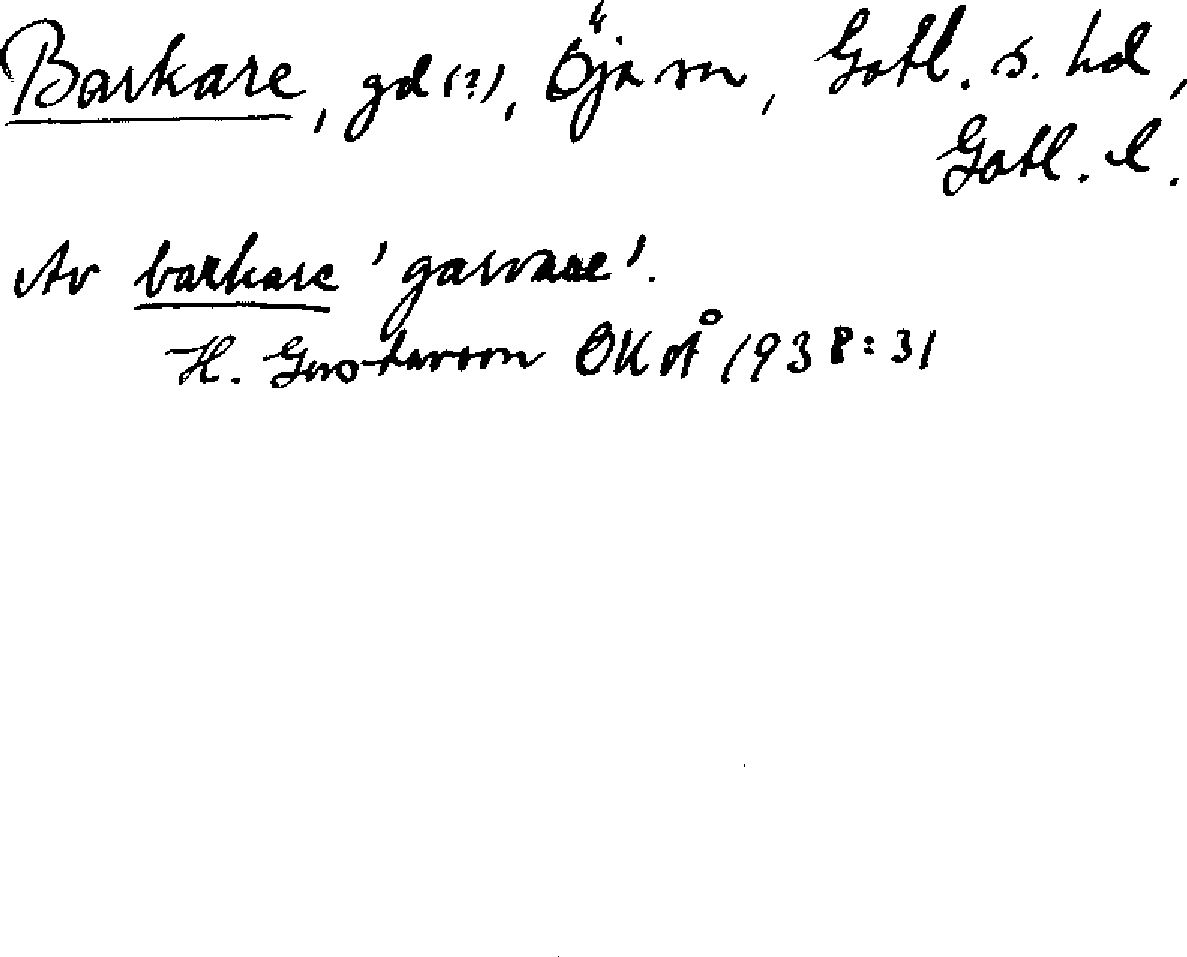 Barkare, gd (?), Öja sn, Gotl. s. hd,
Gotl. l.
Av barkare 'garvare'.
H. Gustavson OKoÅ 1938:31